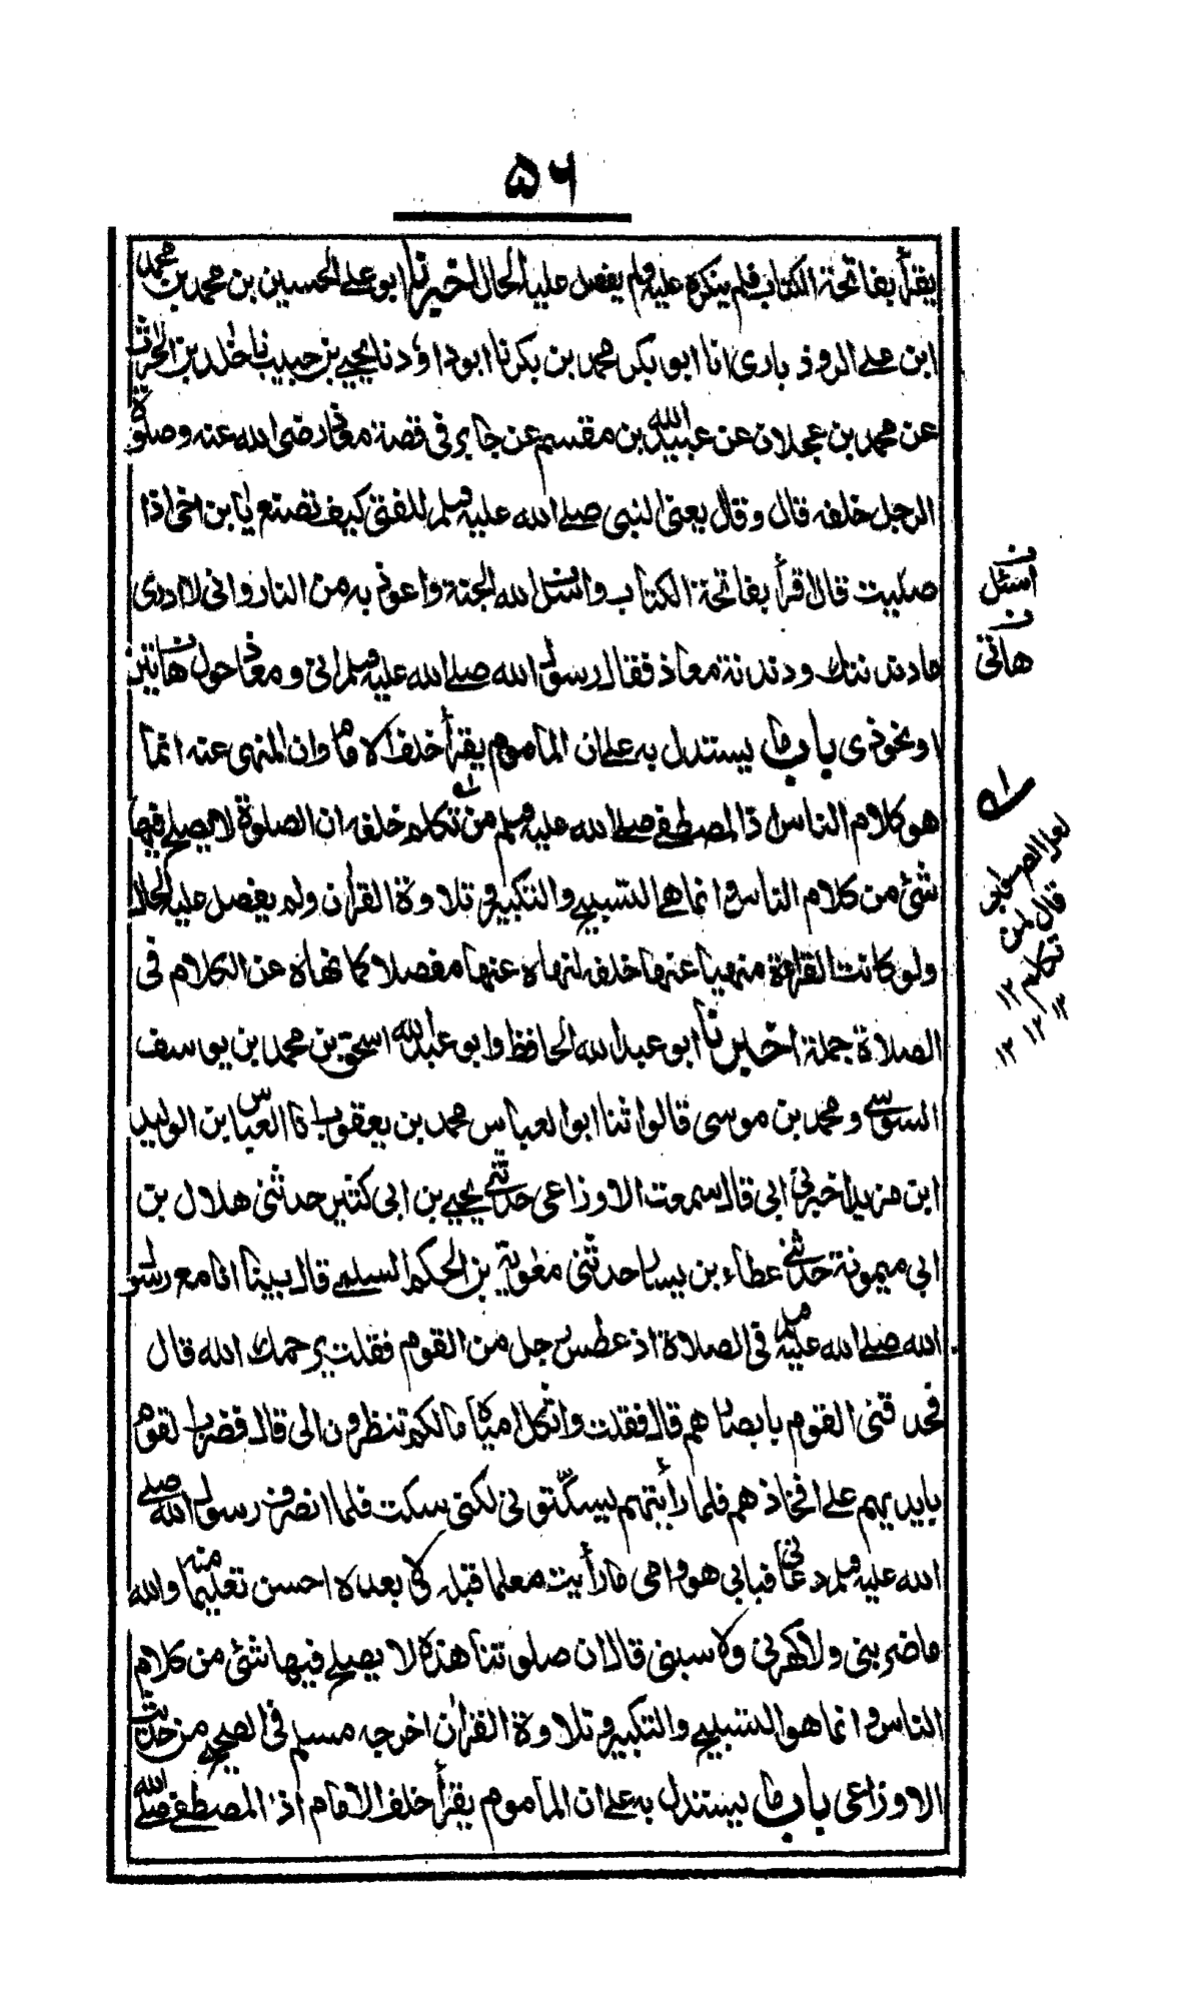 ۵۶
يقرأ بفاتحة الكتاب فلم ينكره عليه ولم يفصل عليه الحال اخبرنا ابو علي الحسين بن محمد بن محمد
ابن علي الروذباری انا ابو بكر محمد بن بكر نا ابو داؤد نا يحيے بن حبيب نا خلد بن الحرث
عن محمد بن عجلان عن عبيد الله بن مقسم عن جابر فی قصة معاذ رضی الله عنه وصلوة
الرجل خلفه قال وقال يعنی النبی صلے الله عليه وسلم للفتی كيف تصنع يا بن اخی اذا
صليت قال اقرأ بفاتحة الكتاب واسئل الله الجنة واعوذ به من النار وانی لا ادری
ما دندنتك ودندنة معاذ فقال رسول الله صلے الله عليه وسلم انی ومعاذ حول هاتين
او نحو ذی باب ما يستدل به علے ان الماموم يقرأ خلف الامام وان المنهی عنه انما
هو كلام الناس اذ المصطفے صلے الله عليه وسلم من تكلم خلفه ان الصلوة لا يصلح فيها
شئ من كلام الناس وانما هی التسبيح والتكبير وتلاوة القران ولم يفصل عليه الحال
ولو كانت القراءة منهيا عنها خلفه لنهاه عنها مفصلا كما نهاه عن الكلام فی
الصلاة جملة اخبرنا ابو عبد الله الحافظ وابو عبد الله اسحق بن محمد بن يوسف
السوسی ومحمد بن موسی قالوا ثنا ابو العباس محمد بن يعقوب نا العباس بن الوليد
ابن مزيد اخبرنی ابی قال سمعت الاوزاعی حدثنی يحيے بن ابی كثير حدثنی هلال بن
ابی ميمونة حدثنی عطاء بن يسار حدثنی معوية بن الحكم السلمی قال بينا انا مع رسول
الله صلے الله عليه وسلم فی الصلاة اذ عطس رجل من القوم فقلت يرحمك الله قال
فحدقنی القوم بابصارهم قال فقلت واثكل امياه مالكم تنظرون الی قال فضرب القوم
بايديهم علے افخاذهم فلما رأيتهم يسكتونی لكنی سكت فلما انصرف رسول الله صلے
الله عليه وسلم دعانی فبابی هو وامی ما رأيت معلما قبله ولا بعده احسن تعليما منه والله
ما ضربنی ولا كهرنی ولا سبنی قال ان صلوتنا هذه لا يصلح فيها شئ من كلام
الناس وانما هو التسبيح والتكبير وتلاوة القران اخرجه مسلم فی الصحيح من حديث
الاوزاعی باب ما يستدل به علے ان الماموم يقرأ خلف الامام اذ المصطفے صلے الله
ن
اسئل
ن
هاتی
لعل الصحيح
قال لمن
تكلم
۱۲